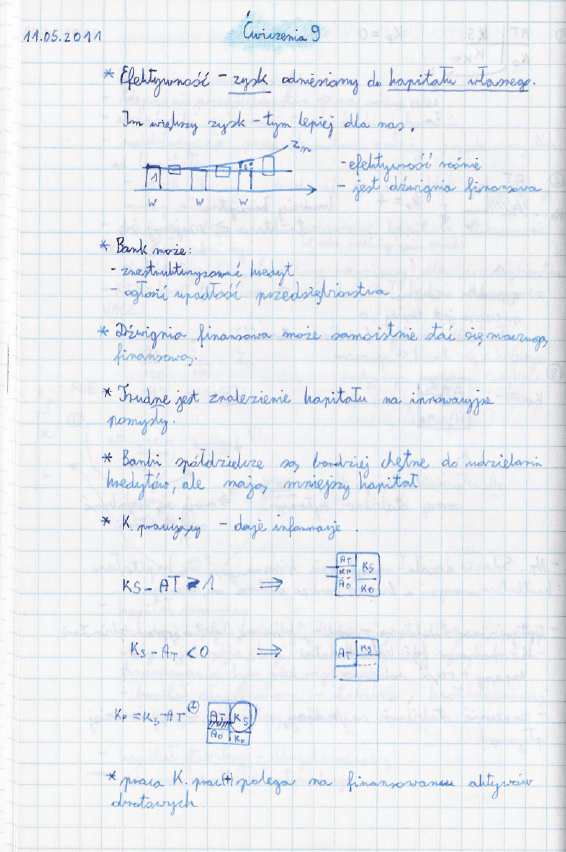 11.05.2011
Ćwiczenia 9
* Efektywność – zysk odniesiony do kapitału własnego.
Im większy zysk – tym lepiej dla nas.
zn
1
W W W
- efektywność rośnie
- jest dźwignia finansowa
* Bank może:
- zrestrukturyzować kredyt
- ogłosić upadłość przedsiębiorstwa
* Dźwignia finansowa może samoistnie stać się maczugą
finansową.
* Trudne jest znalezienie kapitału na innowacyjne
pomysły.
* Banki spółdzielcze są bardziej chętne do udzielania
kredytów, ale mają mniejszy kapitał
* K. pracujący – daje informacje.
KS – AT > 1 ⇒
AT KS
KP
AO KO
KS – AT < 0 ⇒
AT KS
KP = KS – AT (+)
AT KS
AO KO
* praca K. prac (+) polega na finansowaniu aktywów
obrotowych